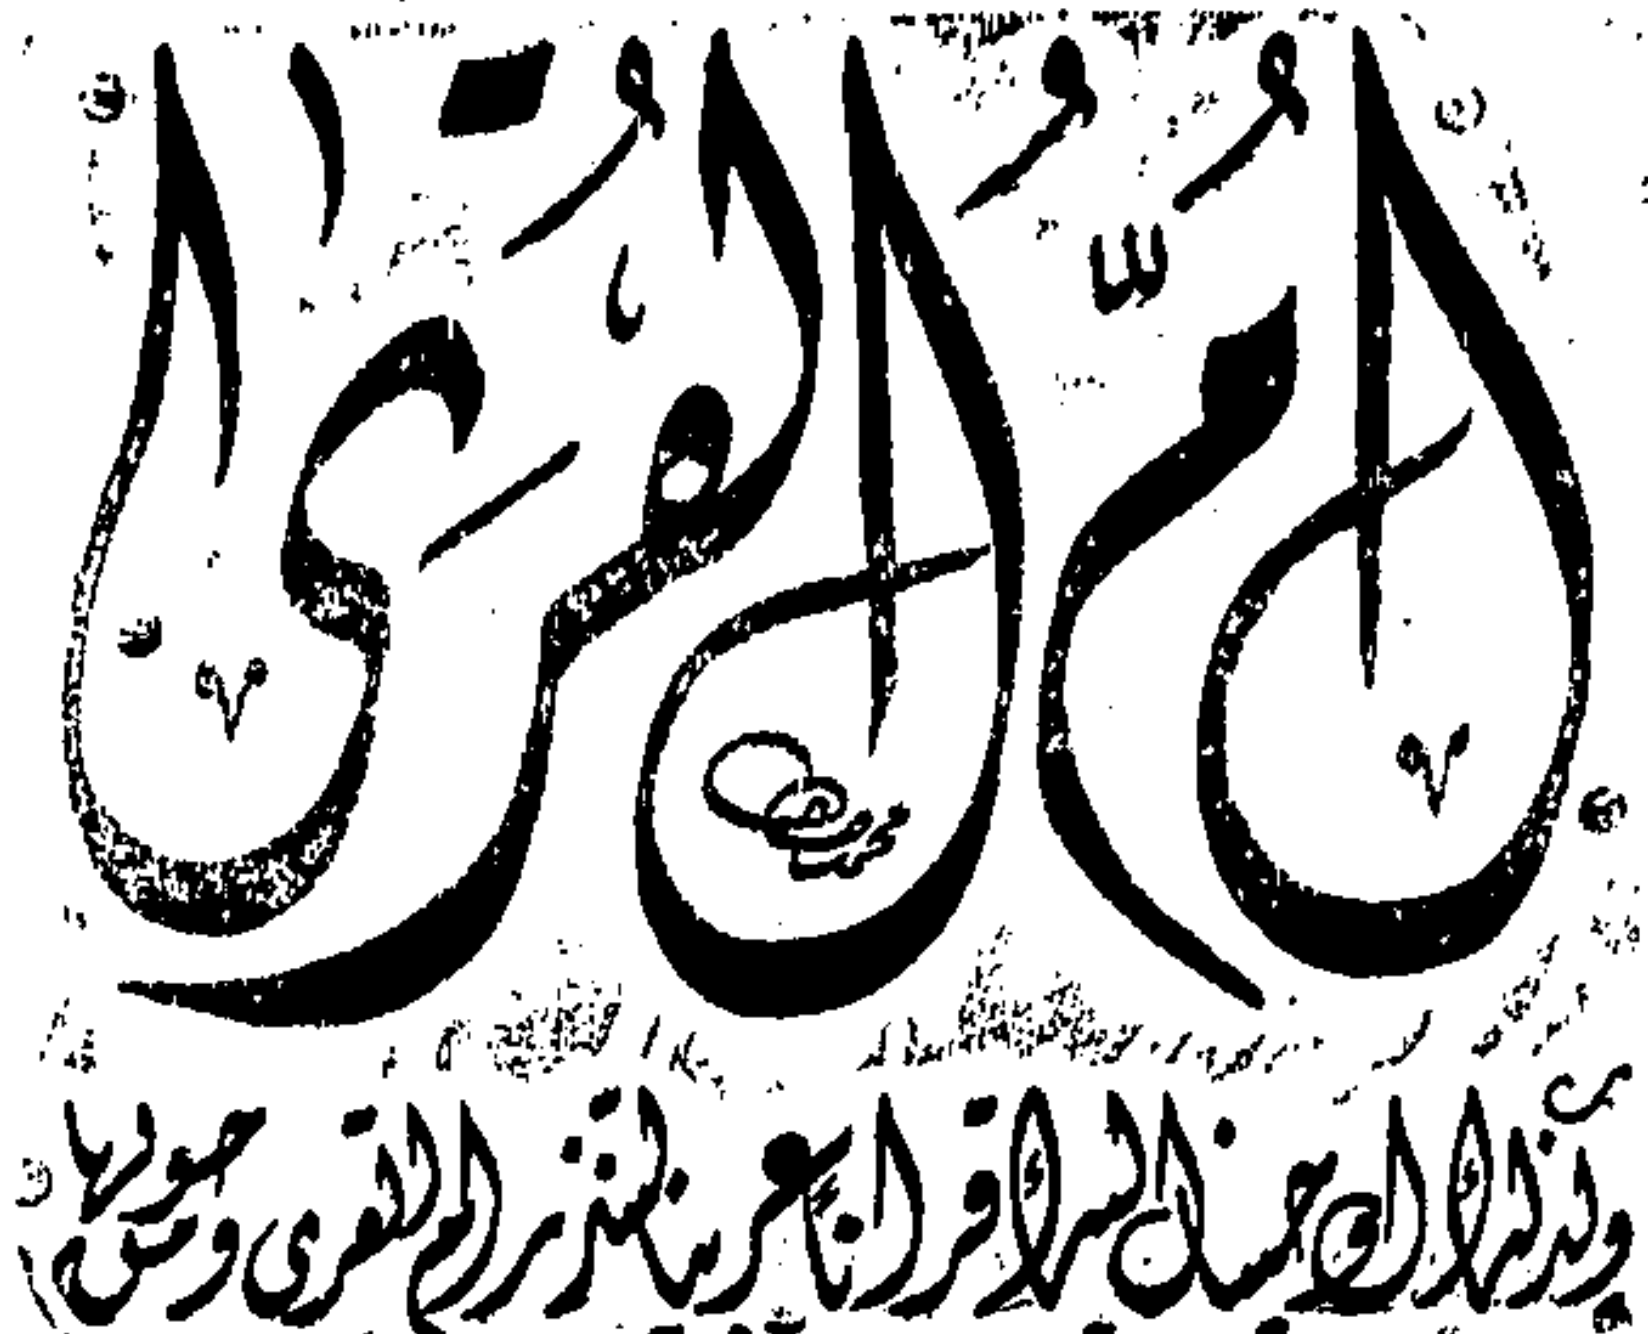 أم القرى
وكذلك أوحينا إليك قرآنا عربيا لتنذر أم القرى ومن حولها